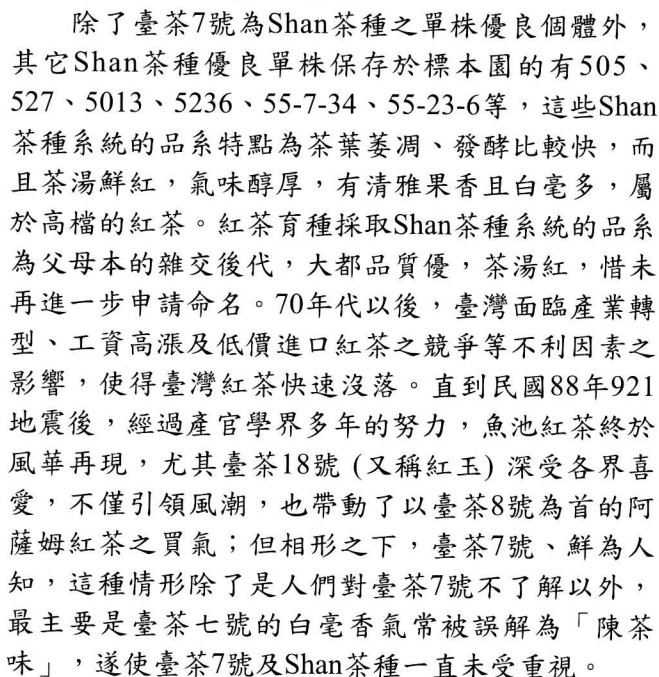 除了臺茶7號為Shan茶種之單株優良個體外，
其它Shan茶種優良單株保存於標本園的有505、
527、5013、5236、55-7-34、55-23-6等，這些Shan
茶種系統的品系特點為茶葉萎凋、發酵比較快，而
且茶湯鮮紅，氣味醇厚，有清雅果香且白毫多，屬
於高檔的紅茶。紅茶育種採取Shan茶種系統的品系
為父母本的雜交後代，大都品質優，茶湯紅，惜未
再進一步申請命名。70年代以後，臺灣面臨產業轉
型、工資高漲及低價進口紅茶之競爭等不利因素之
影響，使得臺灣紅茶快速沒落。直到民國88年921
地震後，經過產官學界多年的努力，魚池紅茶終於
風華再現，尤其臺茶18號 (又稱紅玉) 深受各界喜
愛，不僅引領風潮，也帶動了以臺茶8號為首的阿
薩姆紅茶之買氣；但相形之下，臺茶7號、鮮為人
知，這種情形除了是人們對臺茶7號不了解以外，
最主要是臺茶七號的白毫香氣常被誤解為「陳茶
味」，遂使臺茶7號及Shan茶種一直未受重視。